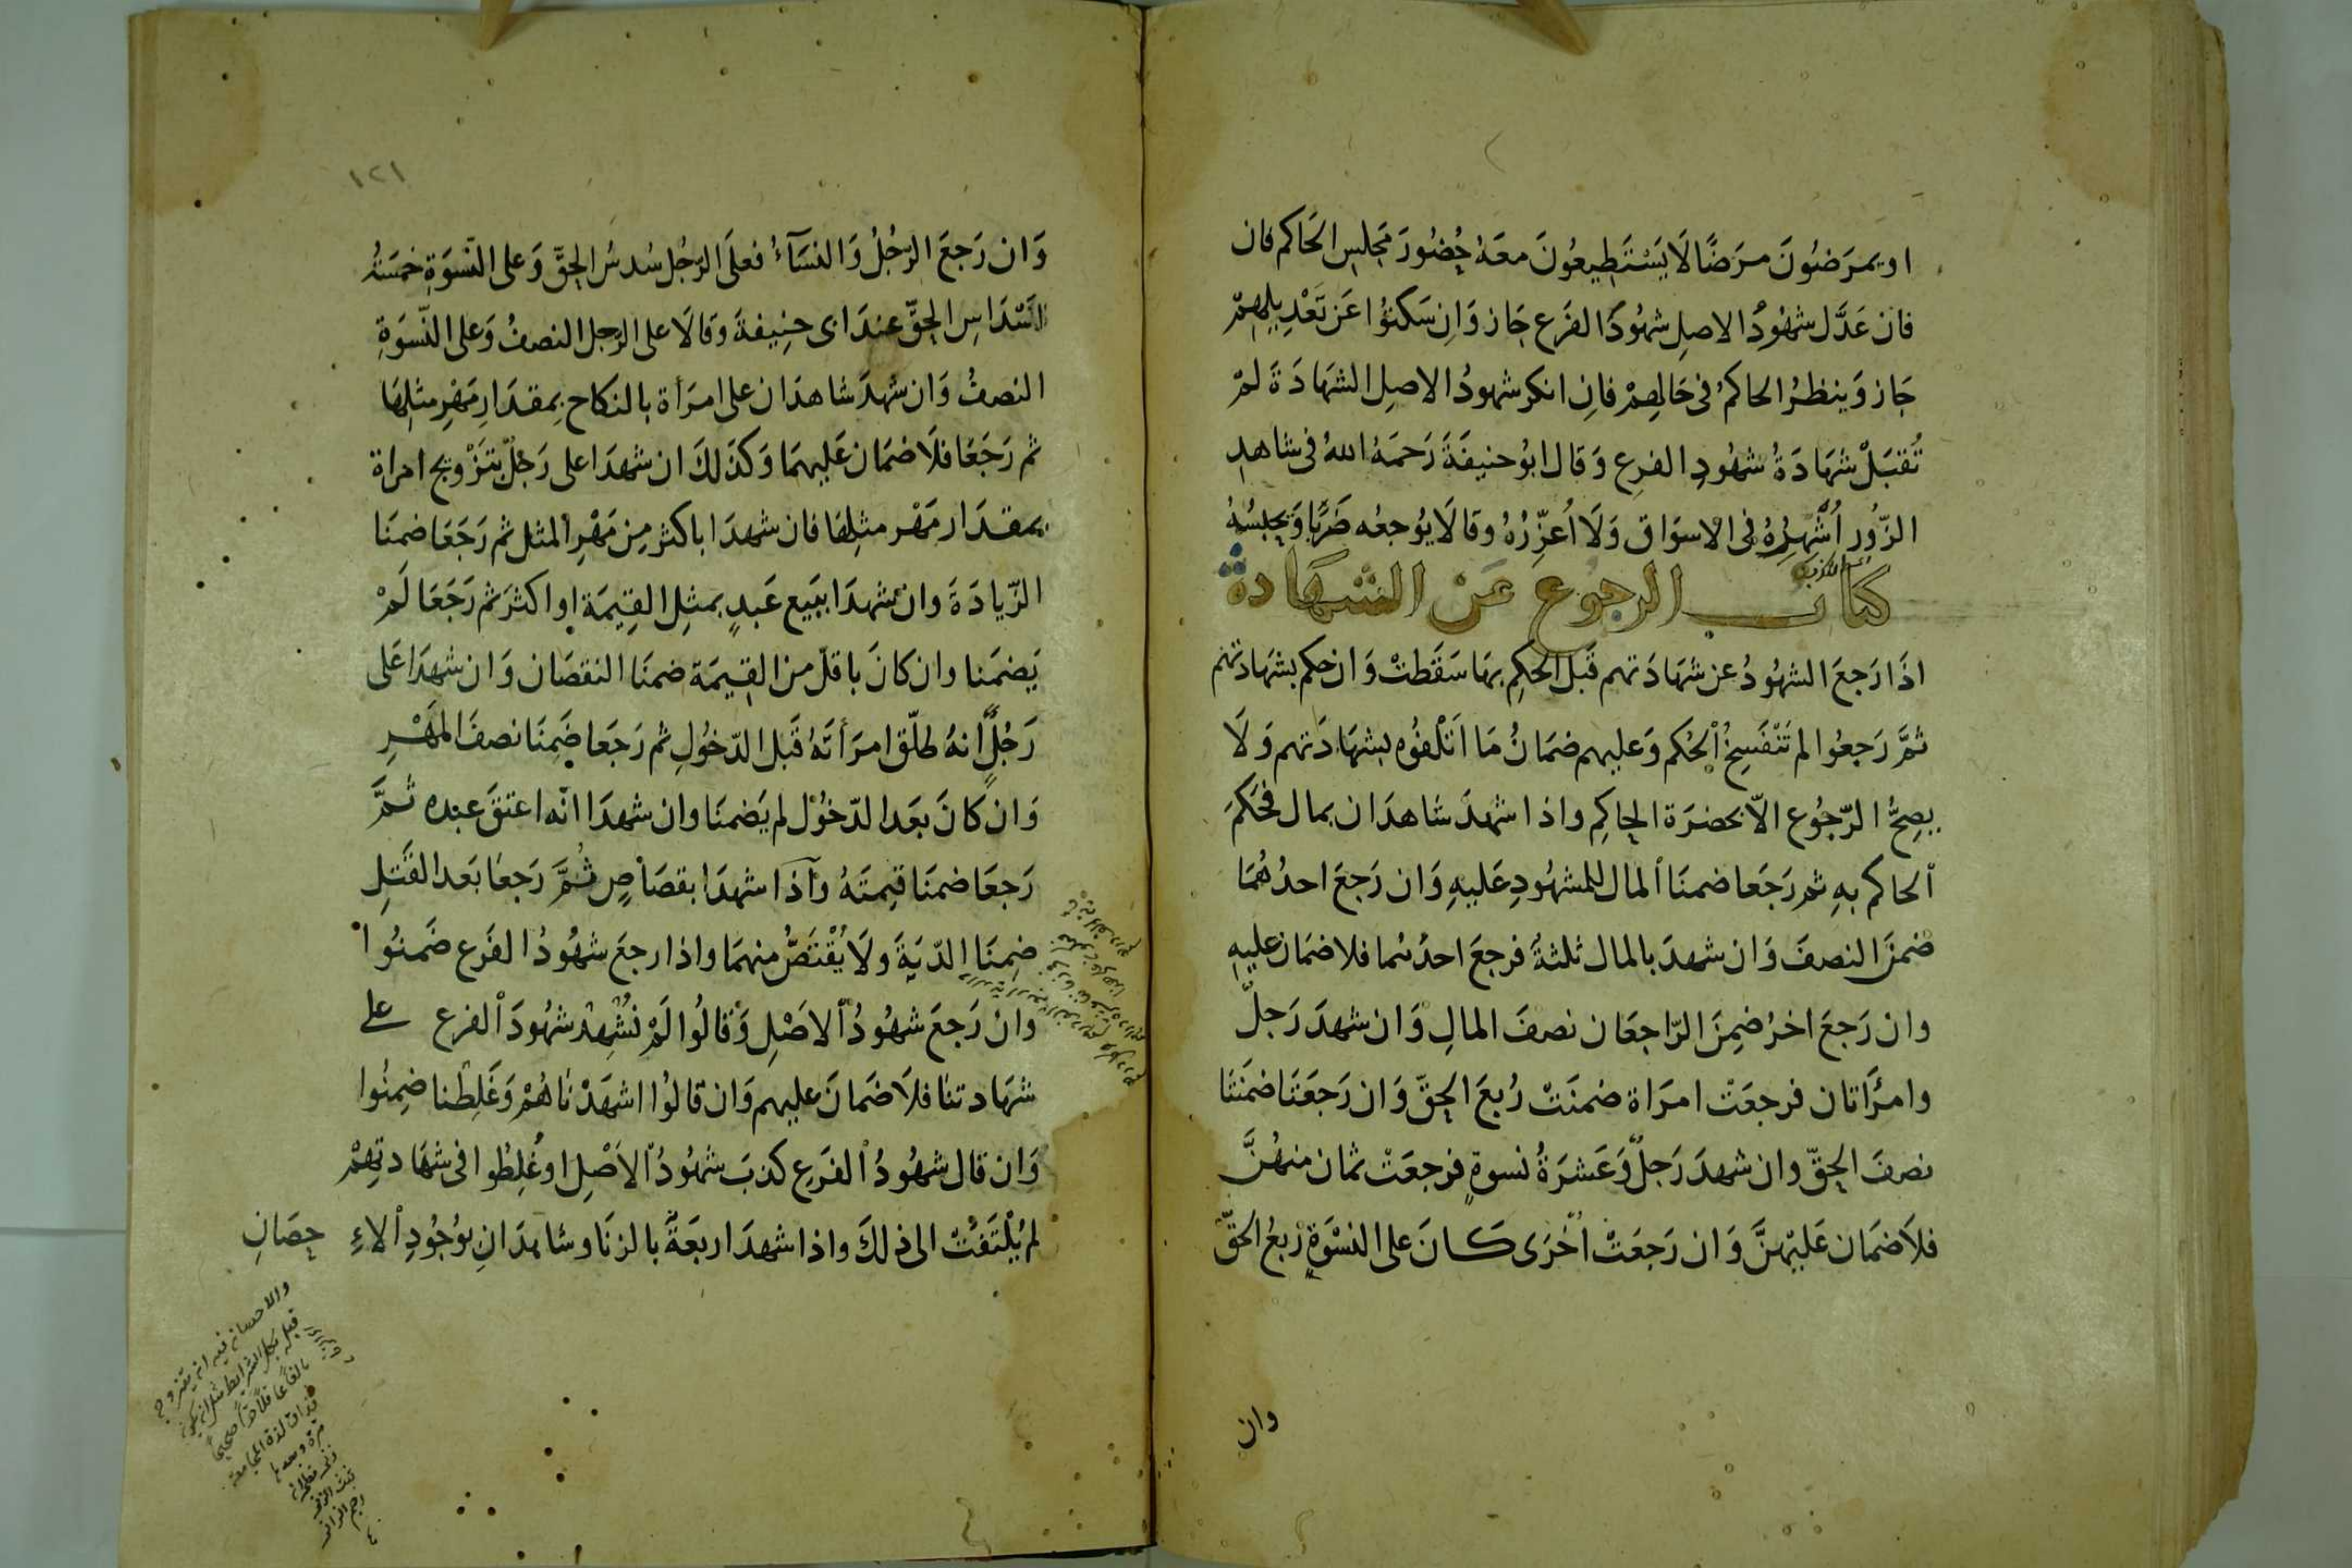 او يمرَضُونَ مرَضًا لَا يَسْتَطِيعُونَ معَهُ حُضُورَ مَجلِسِ الحَاكم فان
فان عَدَّل شهُودُ الاصلِ شهُودَ الفرَع جَاز وَاِن سَكتُوا عَن تَعْدِيلِهِمْ
جَاز وَينظرُ الحاكمُ فى حَالِهِمْ فانِ انكر شهودُ الاصلِ الشهَادَةَ لمْ
تُقبَلْ شهَادَةُ شهُودِ الفرعِ وَقال ابوُ حنيفَةَ رَحمَهُ اللهُ فى شاهدِ
الزّورِ اُشَهِّرُهُ فى الاسوَاق وَلَا اُعَزِّرُهُ وقالَا يُوجعُه ضَربًا وَيحبسُهُ
كتاب الرجوع عَنْ الشهَادة
اذَا رَجَعَ الشهُودُ عن شهَادَتهم قَبل الحكِم بهَا سَقَطتْ وَان حكم بشهَادتهم
ثمَّ رَجعُوا لم تَنْفَسِخُ الْحُكم وَعليهم ضمَانُ مَا اَتْلفُوه بشهَادَتهم وَلَا
يصِحُّ الرّجُوع الاّ بحضرَة الحاكِم واذا شهدَ شاهدَان بمال فحَكَمَ
الحاكم بهِ ثم رَجَعَا ضمنَا المال للمشهُودِ عَليهِ وَان رَجعَ احدُهُمَا
ضمنَ النصفَ وَان شهدَ بالمال ثلثةُ فرجعَ احدُهُما فلا ضمَان عليهِ
وان رَجعَ اخرُ ضمِنَ الرّاجعَان نصفَ المالِ وَان شهدَ رَجلٌ
وامرَأتان فرجعَتْ امرَاة ضمنَتْ رُبعَ الحقّ وَان رَجعَتَا ضمَنَتا
نصفَ الحقّ وان شهدَ رَجلٌ وَعَشرَةُ نسوةٍ فرجعَتْ ثمان منهُنَّ
فلاَ ضمَان عَليْهنَّ وَان رَجعَتْ اُخْرَى كَانَ على النسْوَةِ رُبعُ الحقّ
وان
١٢١
وَان رَجعَ الرّجُلُ وَالنسَآءُ فعلَى الرّجُلِ سُدسُ الحقَّ وَعلى النّسْوَةِ خمسَةُ
اَسْدَاسِ الحقّ عندَ ابى حنِيفةَ وَقالَا على الرّجل النصفُ وَعلى النّسوَةِ
النصفُ وَان شهدَ شاهدَان على امرَأة بالنكاح بمِقدَارِ مَهْرِ مثلِهَا
ثم رَجَعَا فلَا ضمَان عَليهمَا وَكذلكَ ان شهدَا على رَجُلٍ بتَزْويج امراة
بمقدَار مَهْر مثلِهَا فان شهدَا باكثر مِن مَهْرِ المثل ثم رَجَعَا ضمنَا
الزّيادَةَ وان شهدَا ببَيع عَبدٍ بمثلِ القِيمَة او اكثرَ ثم رَجَعَا لَمْ
يَضمَنا وان كانَ باقلّ من القيمَة ضمنَا النقصَان وَان شهدَا عَلى
رَجُلٍ اَنهُ طلّق امرَأتَهُ قَبل الدّخُولِ ثم رَجَعَا ضَمِنَا نصفَ المَهْرِ
وَان كَانَ بَعَد الدّخُول لم يَضمنَا وان شهدَا انّه اعتقَ عبده ثمَّ
رَجعَا ضمنَا قيِمتَهُ وَاذا شهدَا بقصَاصٍ ثُمَّ رَجعَا بَعد القَتلِ
ضمِنَا الدّيَةَ ولَا يُقْتَصُّ منهمَا واذا رجعَ شهُودُ الفَرَع ضَمنُوا
وان رَجعَ شهُودُ الاصْلِ وَقَالُوا لَمْ نُشْهِدْ شهُودَ الفرع على
شهَادتنا فلَا ضَمانَ عليهم وَان قالُوا اشهَدْنَاهُمْ وَغَلِطْنا ضمِنُوا
وَان قال شهُودُ الفَرَع كذبَ شهُودُ الاصْلِ او غُلِطُوا فى شهَادتِهِمْ
لم يُلْتَفَتْ الى ذلكَ واذا شهدَ اربعَةٌ بالزنَا وشاهدَانِ بوُجُودِ الاءِ حصَانِ